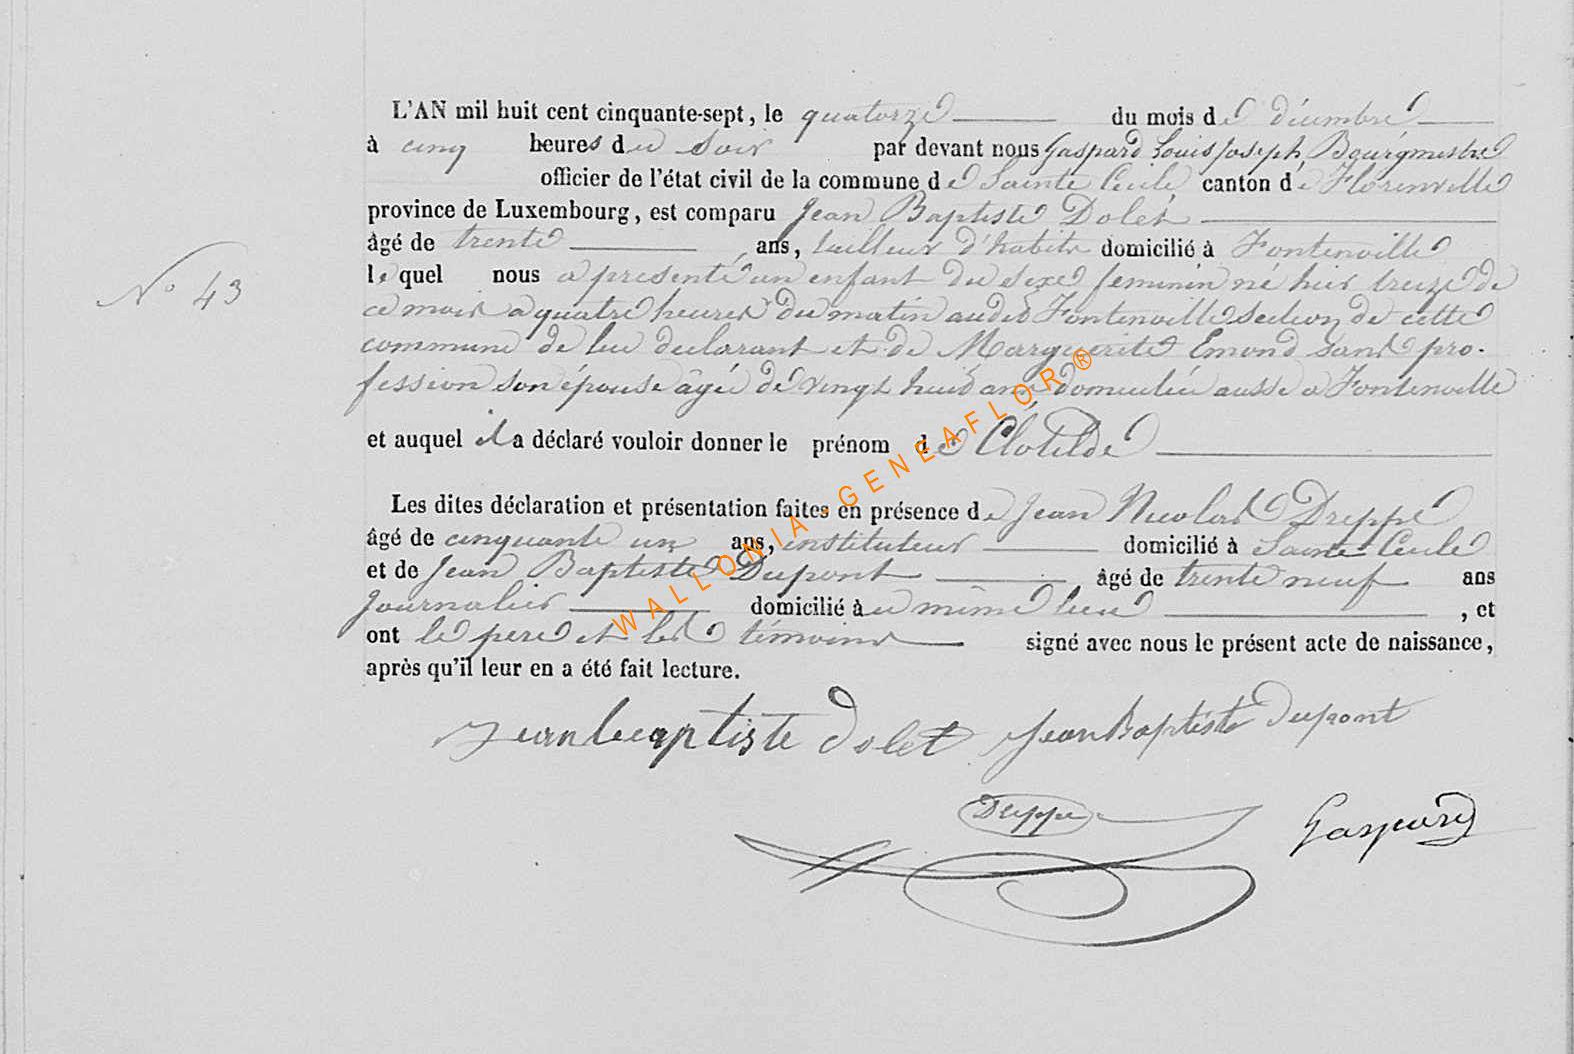 L'AN mil huit cent cinquante-sept, le quatorze du mois de décembre
à cinq heures du soir par devant nous Gaspard Louis Joseph Bourgmestre
officier de l'état civil de la commune de Sainte Cecile canton de Florenville
province de Luxembourg, est comparu Jean Baptiste Dolet
âgé de trente ans, tailleur d'habits domicilié à Fontenoille
lequel nous a presenté un enfant du sexe feminin né hier treize de
N° 43
ce mois a quatre heures du matin audit Fontenoille section de cette
commune de lui declarant et de Marguerite Emond sans pro-
fession son épouse âgée de vingt huit ans domiciliée aussi a Fontenoille
et auquel il a déclaré vouloir donner le prénom de Clotilde
Les dites déclaration et présentation faites en présence de Jean Nicolas Dreppe
âgé de cinquante un ans, instituteur domicilié à Sainte Cecile
et de Jean Baptiste Dupont âgé de trente neuf ans
journalier domicilié à u même lieu , et
ont le pere et les témoins signé avec nous le présent acte de naissance,
après qu'il leur en a été fait lecture.
Jean baptiste dolet Jean Baptiste Dupont
Dreppe
Gaspard
WALLONIA-GENEAFLOR ®